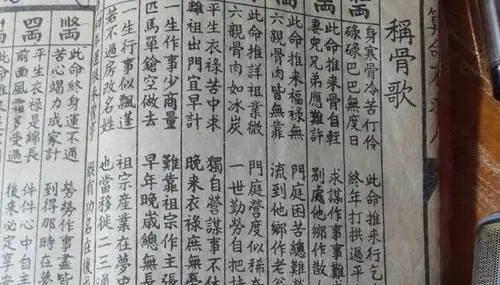 稱骨歌
身寒骨冷苦行伶 此命推來行乞
碌碌巴巴無度日 終年打拱過平
此命推來骨自輕 求謀作事事難
妻兒兄弟應難許 別處他鄉作散
此命推來福祿無 門庭困苦總難
六親骨肉皆無靠 流到他鄉作老
此命推詳祖業微 門庭營度似稀
六親骨肉如冰炭 一世勤勞自把
平生衣祿苦中求 獨自營謀事不
離祖出門宜早計 晚來衣祿庶無
一生作事少商量 難靠祖宗作主張
匹馬單鎗空做去 早年晚歲總無
一生行事似飄蓬 祖宗產業在夢中
若不過房改名姓 也當移徙二三通
此命終身運不通 勞勞作事盡皆
苦心竭力成家計 到得那時在夢
平生衣祿是綿長 件件心中
前面風霜多受過 後來必定享安